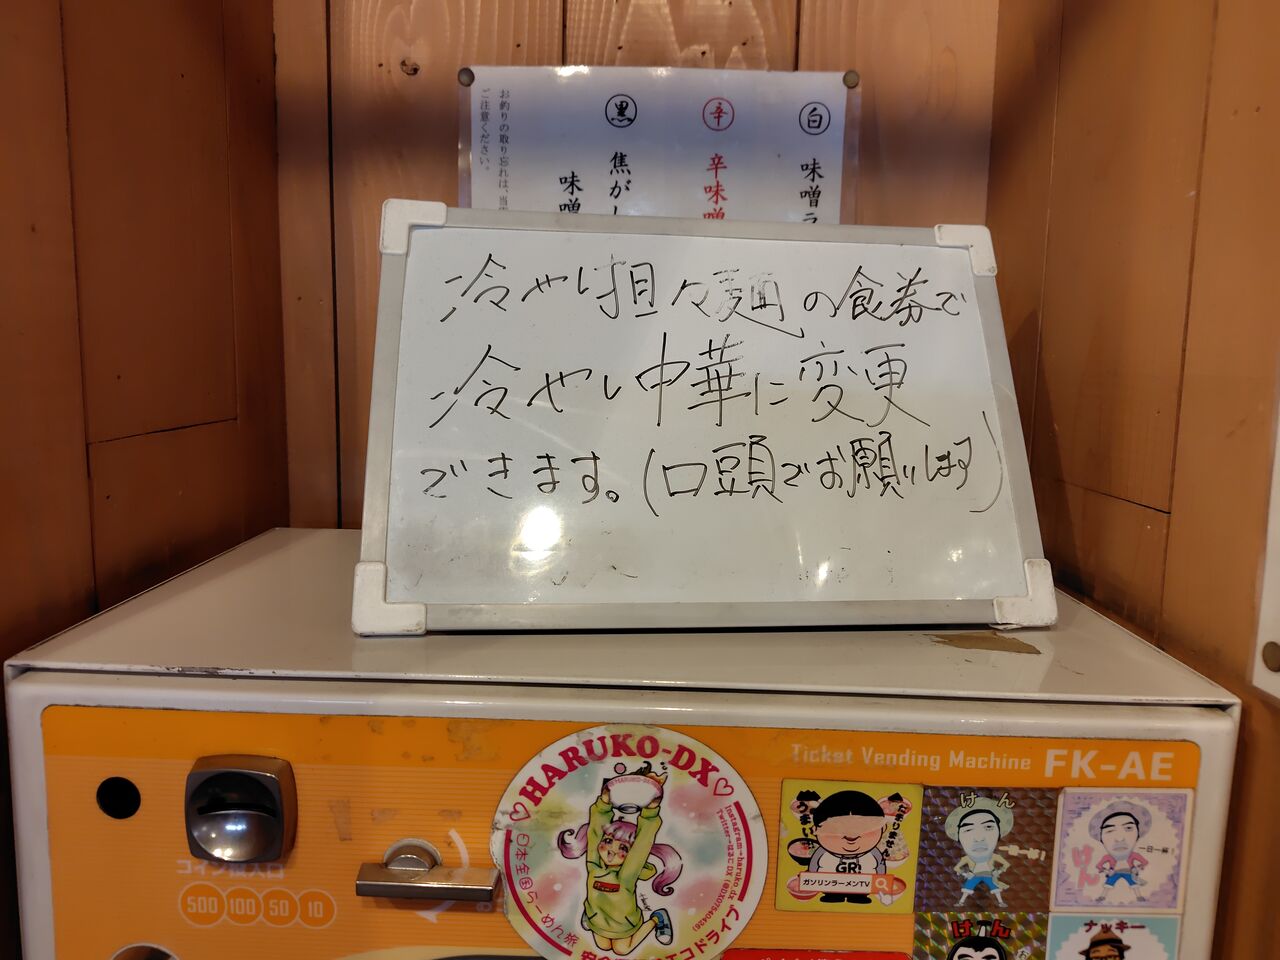 白 味噌ラ
辛 辛味噌
黒 焦がし
味噌
お釣りの取り忘れは、当店
ご注意ください。
冷やし担々麺の食券で
冷やし中華に変更
できます。(口頭でお願いします)
Ticket Vending Machine FK-AE
コイン投入口
500 100 50 10
♡HARUKO-DX♡
日本全国らーめん旅
うまい
たまりません
GR
ガソリンラーメンTV
けん
一日一麺
けん
一日一麺
けん
ナッキー